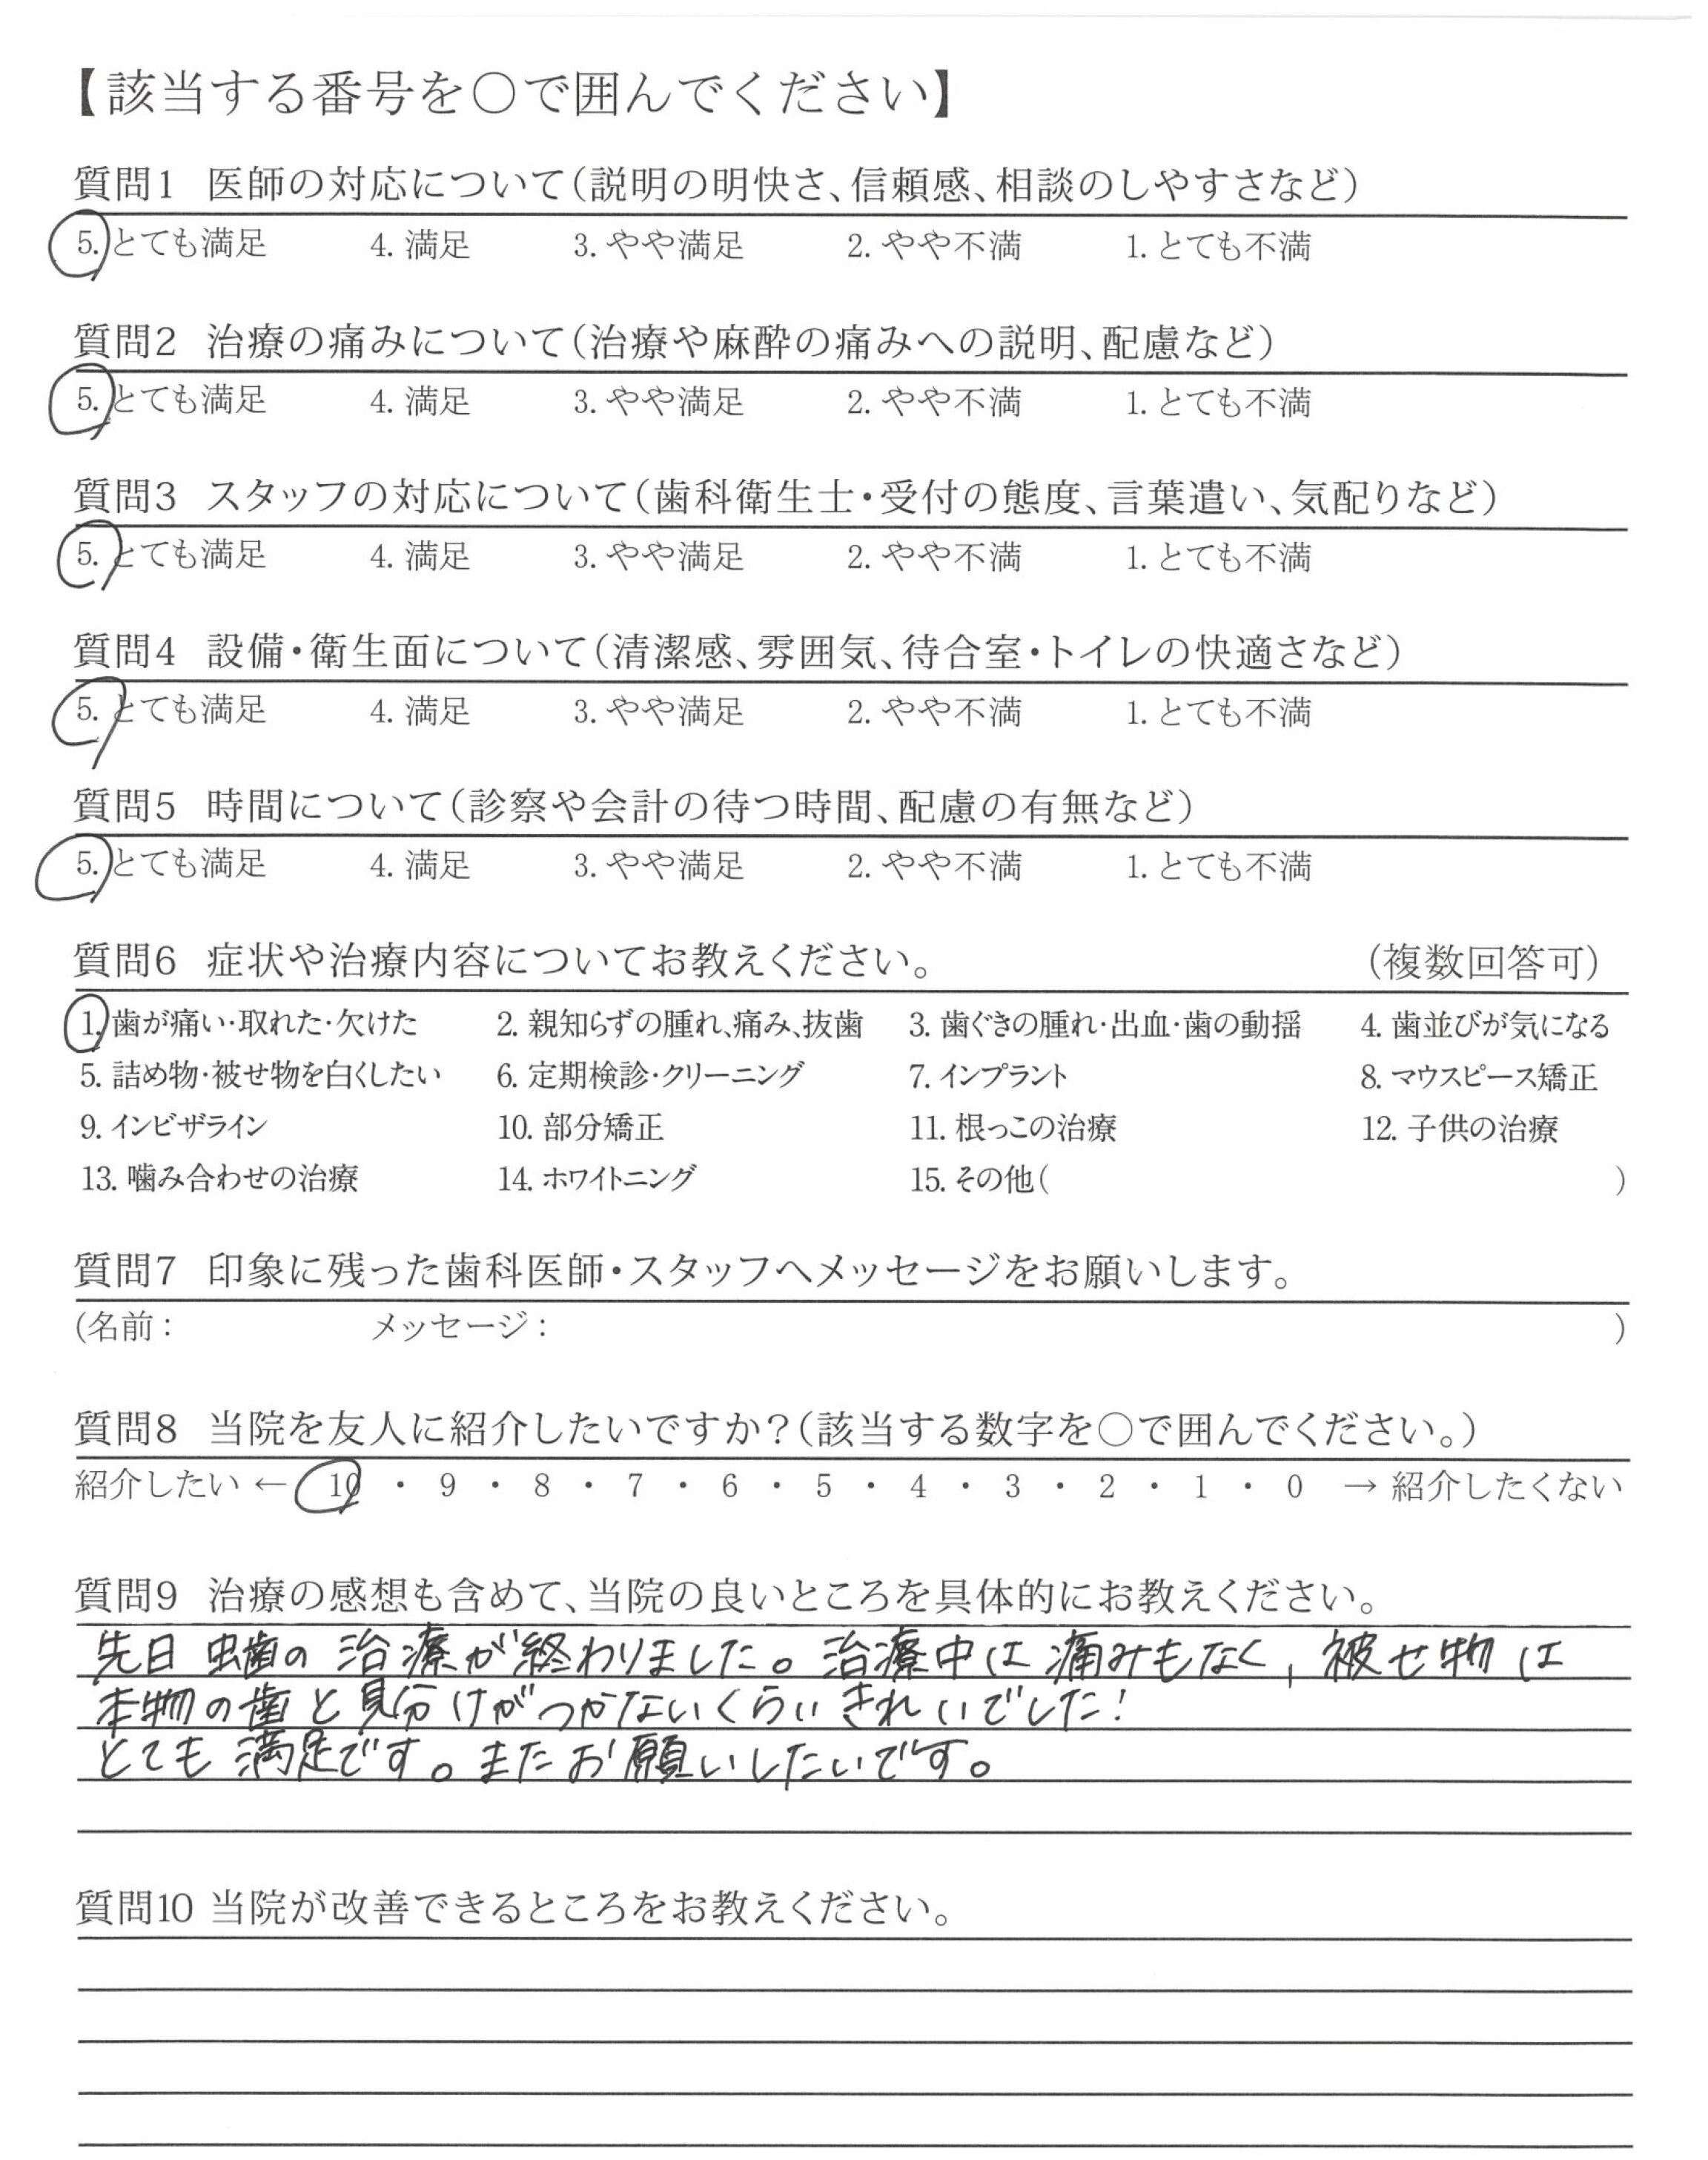 【該当する番号を○で囲んでください】
質問1 医師の対応について(説明の明快さ、信頼感、相談のしやすさなど)
5. とても満足 4. 満足 3. やや満足 2. やや不満 1. とても不満
質問2 治療の痛みについて(治療や麻酔の痛みへの説明、配慮など)
5. とても満足 4. 満足 3. やや満足 2. やや不満 1. とても不満
質問3 スタッフの対応について(歯科衛生士・受付の態度、言葉遣い、気配りなど)
5. とても満足 4. 満足 3. やや満足 2. やや不満 1. とても不満
質問4 設備・衛生面について(清潔感、雰囲気、待合室・トイレの快適さなど)
5. とても満足 4. 満足 3. やや満足 2. やや不満 1. とても不満
質問5 時間について(診察や会計の待つ時間、配慮の有無など)
5. とても満足 4. 満足 3. やや満足 2. やや不満 1. とても不満
質問6 症状や治療内容についてお教えください。 (複数回答可)
1. 歯が痛い・取れた・欠けた 2. 親知らずの腫れ、痛み、抜歯 3. 歯ぐきの腫れ・出血・歯の動揺 4. 歯並びが気になる
5. 詰め物・被せ物を白くしたい 6. 定期検診・クリーニング 7. インプラント 8. マウスピース矯正
9. インビザライン 10. 部分矯正 11. 根っこの治療 12. 子供の治療
13. 噛み合わせの治療 14. ホワイトニング 15. その他( )
質問7 印象に残った歯科医師・スタッフへメッセージをお願いします。
(名前: メッセージ: )
質問8 当院を友人に紹介したいですか?(該当する数字を○で囲んでください。)
紹介したい ← 10 ・ 9 ・ 8 ・ 7 ・ 6 ・ 5 ・ 4 ・ 3 ・ 2 ・ 1 ・ 0 → 紹介したくない
質問9 治療の感想も含めて、当院の良いところを具体的にお教えください。
先日 虫歯の 治療が終わりました。治療中は 痛みもなく、被せ物は
本物の歯と見分けがつかないくらいきれいでした!
とても満足です。またお願いしたいです。
質問10 当院が改善できるところをお教えください。